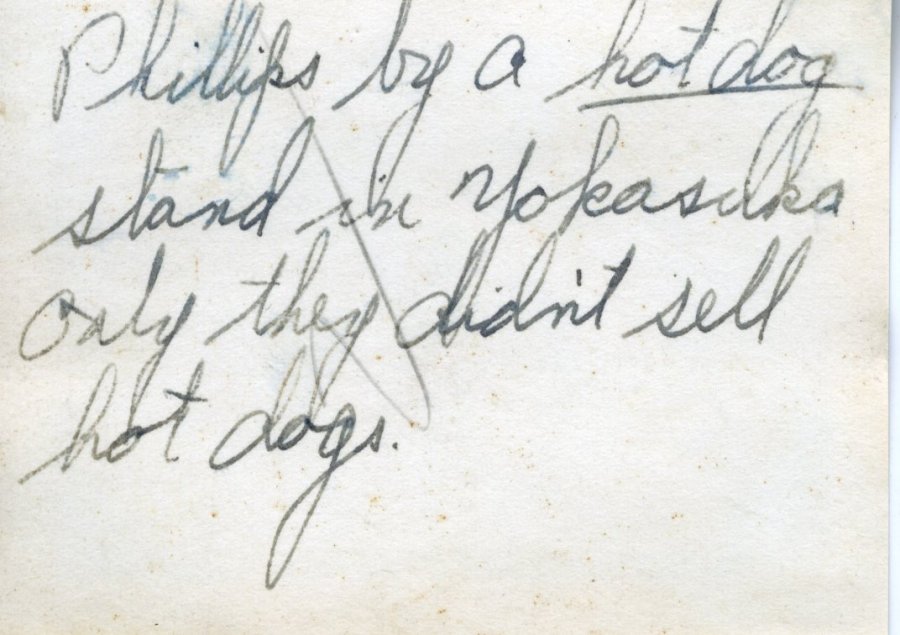 Phillips by a hot dog
stand in Yokasuka
only they didn't sell
hot dogs.